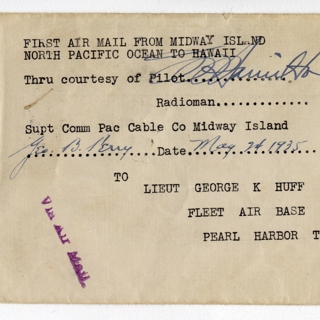 FIRST AIR MAIL FROM MIDWAY ISLAND
NORTH PACIFIC OCEAN TO HAWAII
Thru courtesy of Pilot
Radioman..............
Supt Comm Pac Cable Co Midway Island
Geo. B. Perry Date May 24 1935
TO
LIEUT GEORGE K HUFF
FLEET AIR BASE
PEARL HARBOR T
VIA AIR MAIL